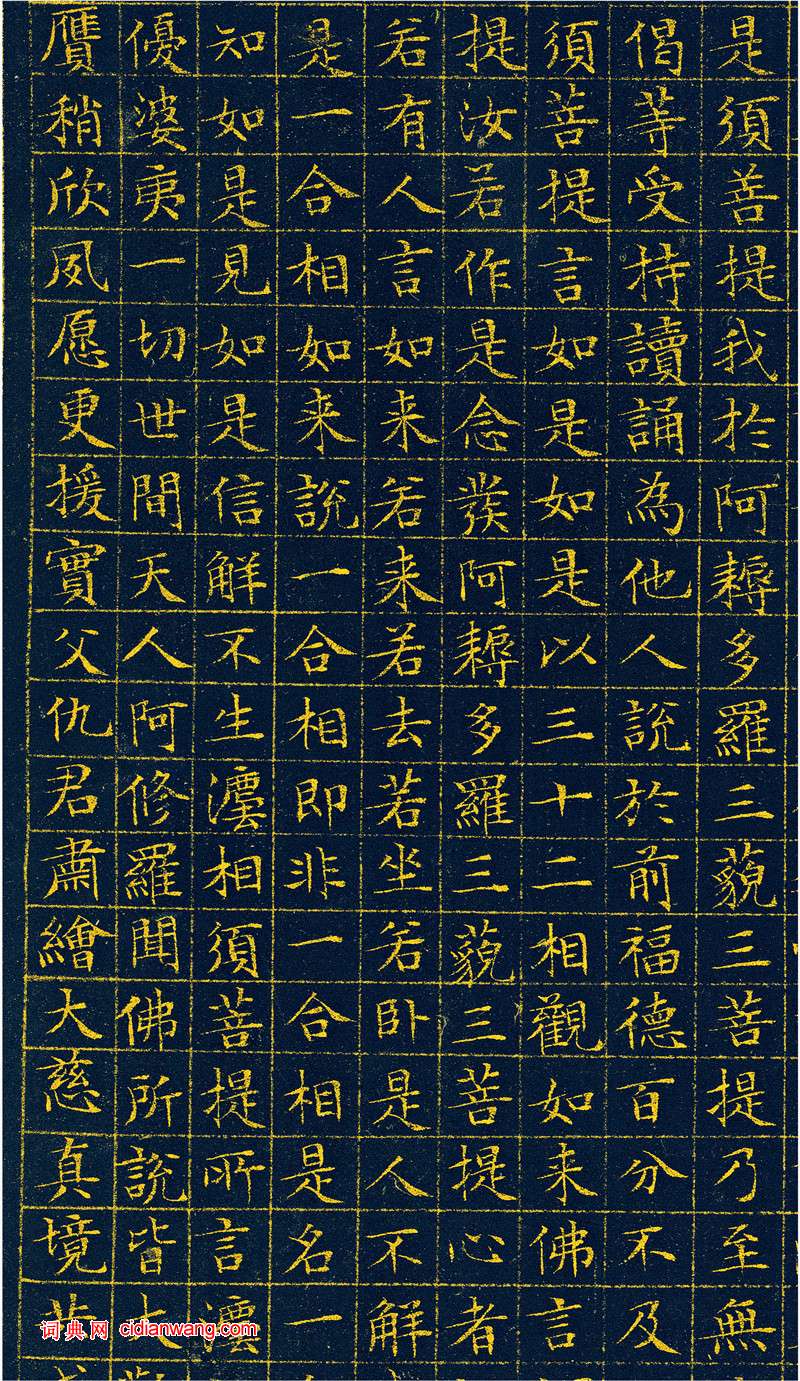 是須菩提我於阿耨多羅三藐三菩提乃至無
偈等受持讀誦為他人說於前福德百分不及
須菩提言如是如是以三十二相觀如来佛言
提汝若作是念發阿耨多羅三藐三菩提心者
若有人言如来若来若去若坐若卧是人不解
是一合相如来說一合相即非一合相是名一
知如是見如是信解不生灋相須菩提所言灋
優婆夷一切世間天人阿修羅聞佛所說皆大
贗稍欣夙愿更援實父仇君肅繪大慈真境
词典网 cidianwang.com